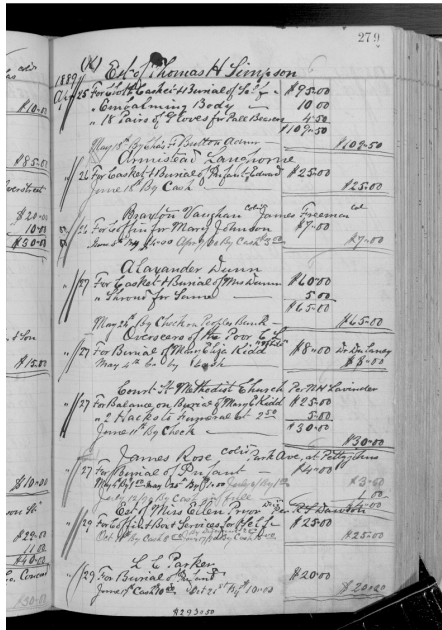 279
(K) Est of Thomas H Simpson
1889
Apr 25 For Cloth Casket & Burial of Self $95.00
" Embalming Body — 10.00
" 18 Pairs of Gloves for Pall Bearers 4.50
$109.50
May 18th By Chas F Button Admr — $109.50
Armistead Langhorne
26 For Casket & Burial of Infant Edward $25.00
June 18th By Cash $25.00
Braxton Vaughan cold James Freeman col
26 For Coffin for Mary Johnson $7.00
$7.00
Alaxander Dunn
" 27 For Casket & Burial of Mrs Dunn $60.00
" Shroud for Same — 5.00
$65.00
May 24th By Check on Peoples Bank — $65.00
Overseers of the Poor
" 27 For Burial of Mary Eliza Kidd $8.00 Dr Dulaney
May 4th by Cash $8.00
Court St Methodist Church Per N H Lavinder
" 27 For Balance on Burial of Mary E Kidd $25.00
" 2 Hacks to Funeral at 2.50 5.00
June 11th By Check — $30.00
$30.00
James Rose cold Park Ave, at Pettyjohns
" 27 For Burial of Infant — $4.00
$3.00
1.00
Est of Miss Ellen Pryor
" 29 For Coffin & Box & Services for Self $25.00
$25.00
L E Parker
" 29 For Burial of Infant $20.00
June 19th Cash 10.00 Oct 21st 10.00 $20.00
$293.50
$10.00
$85.00
Overstreet
$20.00
10.00
$30.00
& Son
$15.00
$10.00
$29.00
11.00
$40.00
$30.00